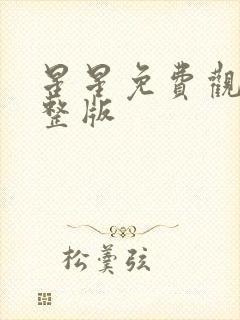 星星免費觀
整版
松羹弦